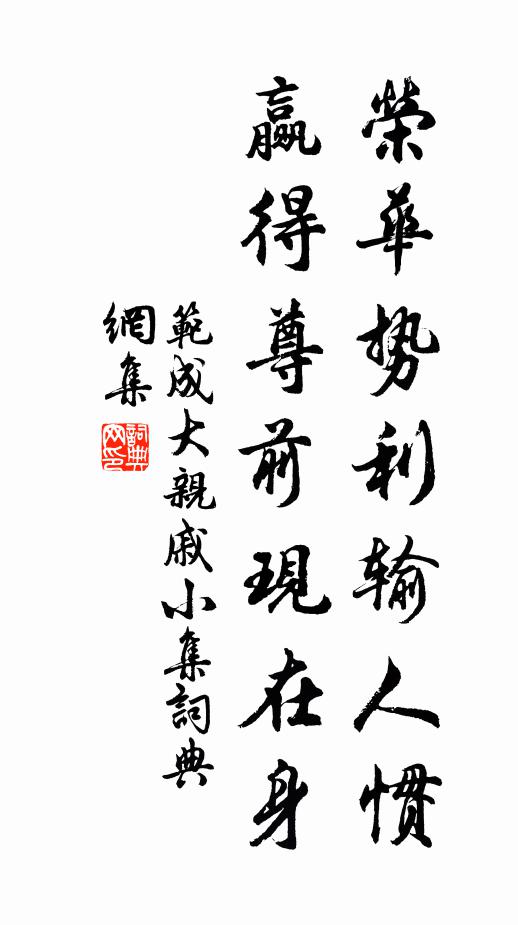 榮華势利输人慣
贏得尊前現在身
範成大親戚小集詞典
網集
詞典網印